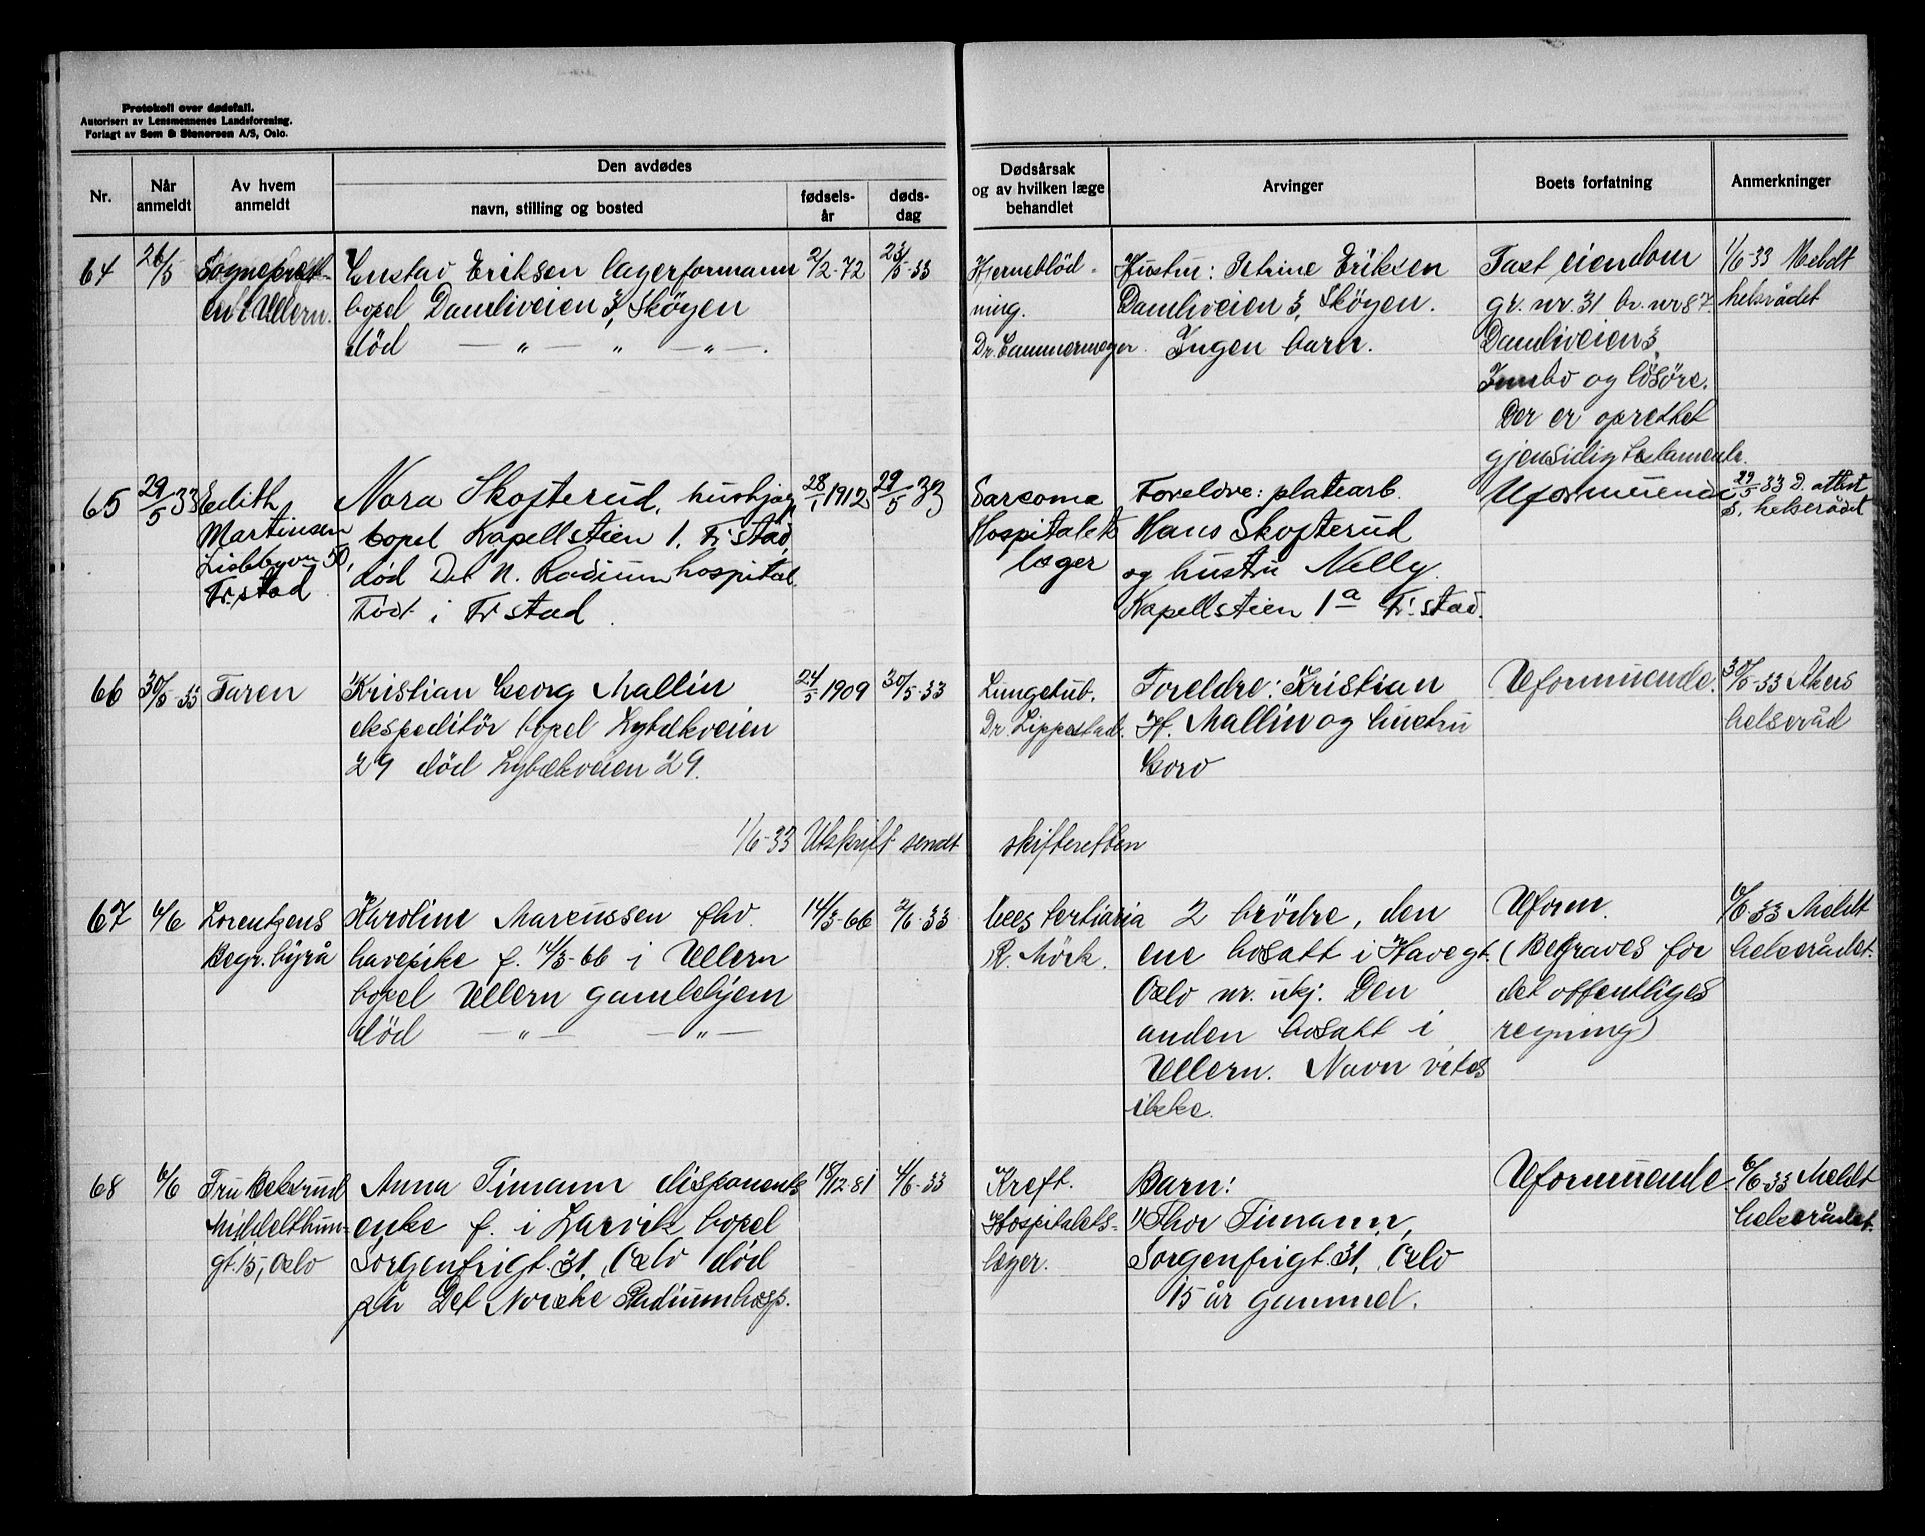 Protokoll over dødsfall.
Autorisert av Lensmennenes Landsforening.
Forlagt av Sem & Stenersen A/S, Oslo.
Nr.
Når anmeldt
Av hvem anmeldt
Den avdødes
navn, stilling og bosted
fødsels-år
døds-dag
Dødsårsak og av hvilken læge behandlet
Arvinger
Boets forfatning
Anmerkninger
64
26/5
Sogneprest-
en i Ullern.
Gustav Eriksen lagerformann
bopel Damliveien 3, Skøyen
død — " — " — " — .
2/2-72
23/5-33
Hjerneblød-
ning.
Dr. Lammermeyer.
Hustru: Petrine Eriksen
Damliveien 3, Skøyen.
Ingen barn.
Fast eiendom
gr. nr. 31 br. nr 87.
Damliveien 3,
Innbo og løsøre.
Der er oprettet
gjensidig testamente.
1/6-33 Meldt
helserådet
65
29/5 33
Edith
Martinsen
50,
Fr.stad
Nora Skofterud, hushj.
bopel Kapellstien 1, Fr.stad,
død Det N. Radiumhospital.
Født i Fr stad.
28/1 1912
29/5-33
Sarcoma
Hospitalets
læger
Foreldre: platearb.
Hans Skofterud
og hustru Nelly.
Kapellstien 1a Fr.stad.
Uformuende
29/5 33 D. attest
s. helserådet
66
30/5-33
Faren
Kristian Georg Mallin
ekspeditør bopel Lybekveien
29 død Lybækveien 29.
24/5 1909
30/5-33
Lungetub.
Dr. Lippestad.
Foreldre: Kristian
H. Mallin og hustru
Goro
Uformuende.
30/5-33 Akers
helseråd
1/6-33 Utskrift sendt skifteretten
67
6/6
Lorentzens
Begr. byrå
Karoline Marcussen fhv.
havepike f. 14/3-66 i Ullern
bopel Ullern gamlehjem
død — " — — " —
14/3-66
2/6-33
Lues tertiaria
R. Mörk.
2 brødre, den
ene bosatt i Havegt.
Oslo nr. ukj. Den
anden bosatt i
Ullern. Navn vites
ikke.
Uform.
(Begraves for
det offentliges
regning)
6/6-33 Meldt
helserådet.
68
6/6
Fru
Middelthun-
gt. 15, Oslo
Anna Timann disponents
enke f. i Larvik bopel
Sorgenfrigt. 31, Oslo død
på Det Norske Radiumhosp.
18/12 81
4/6-33
Kreft.
Hospitalets-
læger.
Barn:
1) Thor Timann,
Sorgenfrigt. 31, Oslo
15 år gammel.
Uformuende.
6/6-33 Meldt
helserådet.